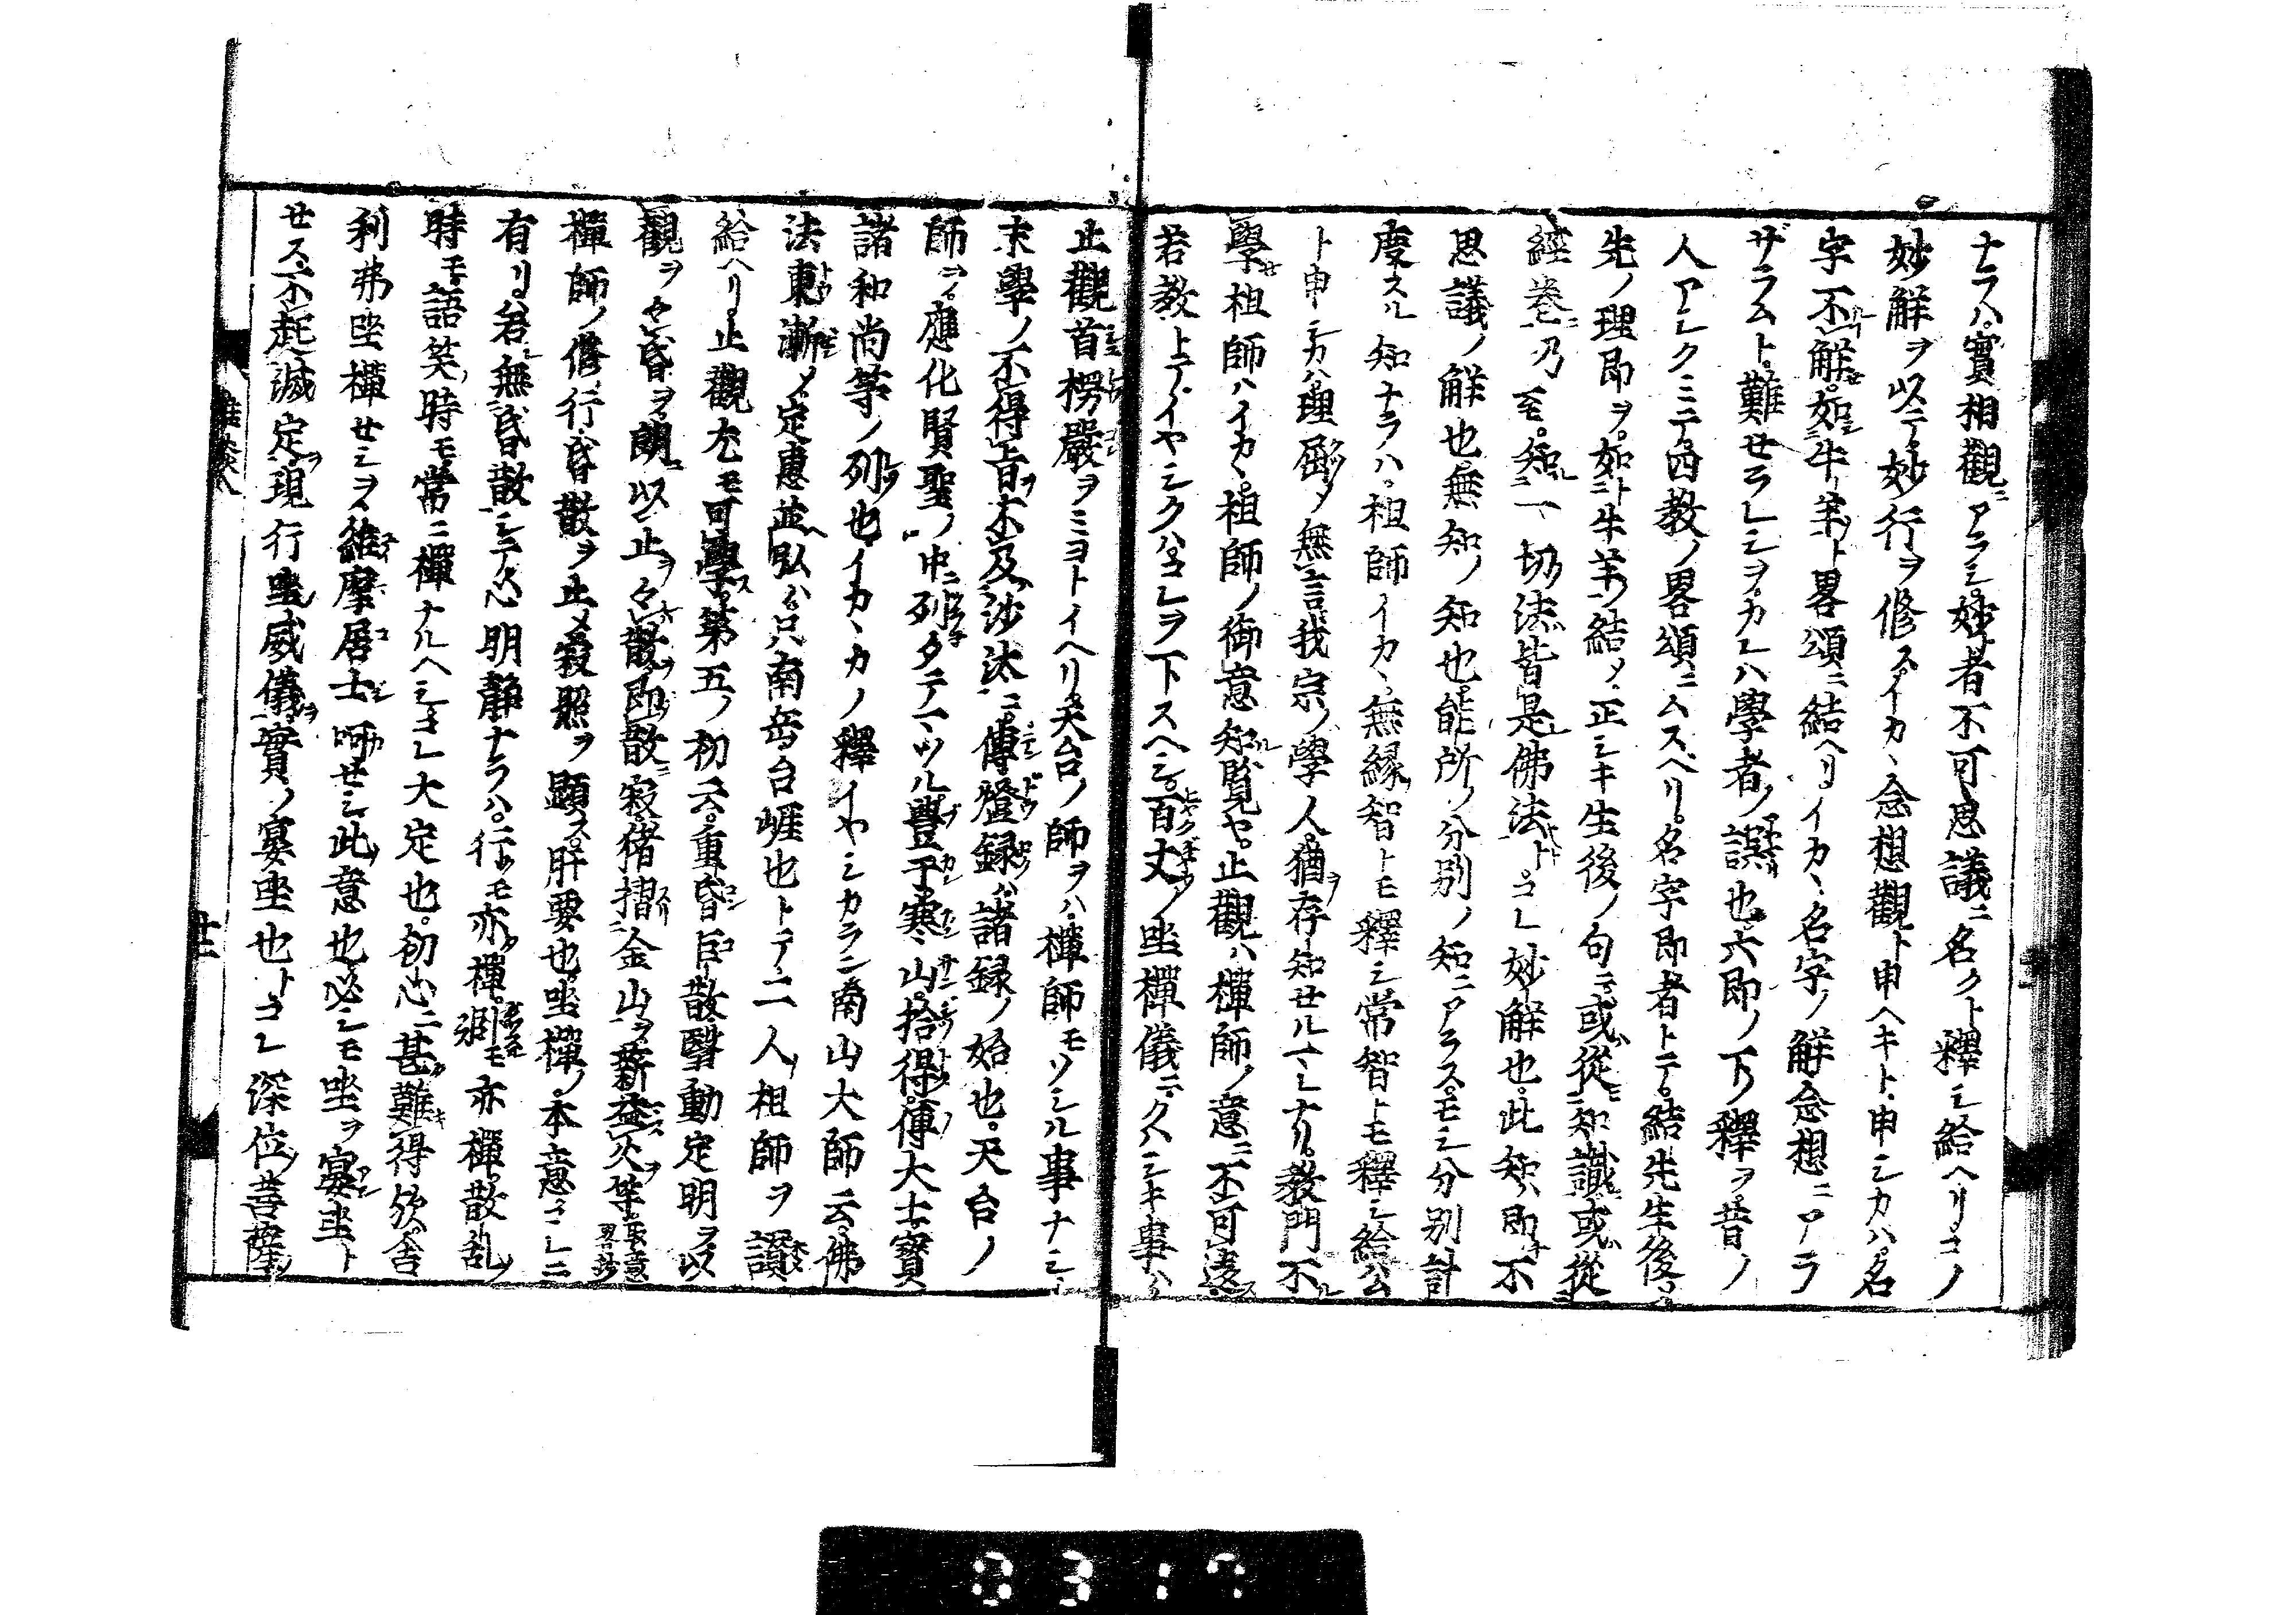 ナラハ實相觀ニアラシ妙者不可思議ニ名クト釋シ給ヘリコノ
妙解ヲ以テ妙行ヲ修スイカヽ念想觀ト申ヘキト申シカハ名
字不解如牛羊ト畧頌ニ結ヘリイカヽ名字ノ解念想ニアラ
ザラムト難セラレシヲカレハ學者ノ誤也六即ノ下ノ釋ヲ昔ノ
人アシクミテ四教ノ畧頌ニムスベリ名字即者トテ結先生後
先ノ理即ヲ如ト牛羊結メ正シキ生後ノ句ニ或從知識或從
經卷乃至知一切法皆是佛法トコレ妙解也此知即不
思議ノ解也無知ノ知也能所ノ分別ノ知ニアラスモシ分別計
度スル知ナラハ祖師イカヽ無縁智トモ釋シ常智トモ釋シ給ハム
ト申シカハ理屈メ無言我宗ノ學人猶存知セルマレナリ教門不
學祖師ハイカヽ祖師ノ御意知覽ヤ止觀ハ禪師ノ意ニ不可違
若教トテイヤシクハコレヲ下スヘシ百丈ノ坐禪儀ニクハシキ事ハ
止觀首楞嚴ヲミヨトイヘリ天台ノ師ヲハ禪師モソシル事ナシ
末學ノ不得旨不及沙汰ニ傳燈録ハ諸録ノ始也天台ノ
師ヲ應化賢聖ノ中ニ列タテマツル豐干寒山拾得傅大士寶
諸和尚等ノ列也イカヽカノ釋イヤシカラン南山大師云佛
法東漸メ定惠並弘ハ只南岳台崕也トテ二人祖師ヲ讃
給ヘリ止觀尤モ可學第五ノ初云重昏巨散翳動定明ヲ以
觀ヲ々昏ヲ朗以止ヲ々散即散寂猪摺金山ヲ薪益火等取意畧抄
禪師ノ修行昏散ヲ止メ寂照ヲ顯ス肝要也坐禪ノ本意コレニ
有リ若無昏散シテ心明靜ナラハ行モ亦禪卧モ亦禪散乱
時モ語笑時モ常ニ禪ナルヘシコレ大定也初心ニ甚難得欤舍
利弗坐禪セシヲ維摩居士呵セシ此意也必シモ坐ヲ宴坐ト
セス不起滅定現行坐威儀實ノ宴坐也トコレ深位菩薩
雜談八
廿二
0317